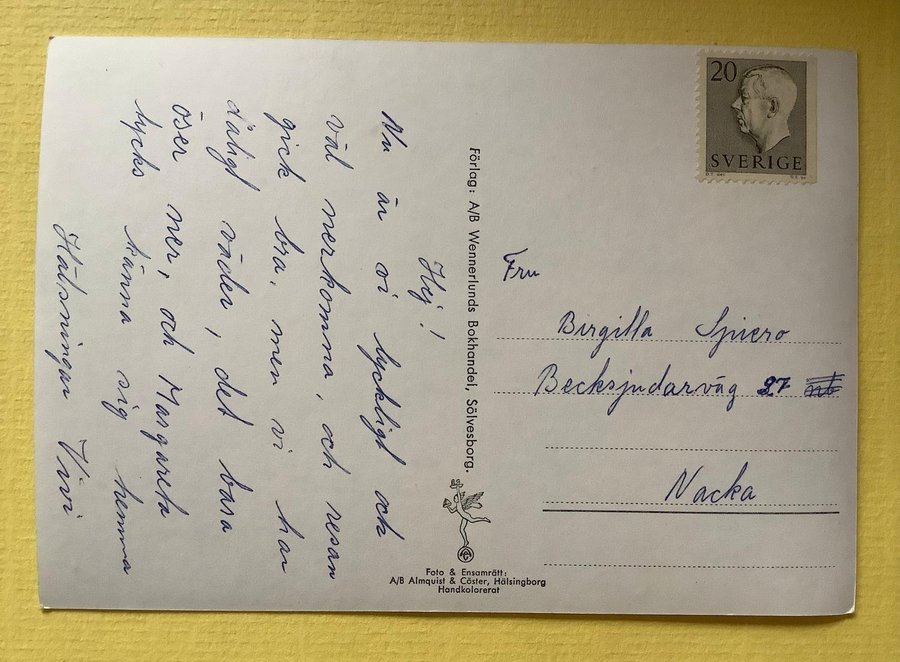 Hej!
Nu är vi lyckligt och
väl nerkomna, och resan
gick bra, men vi har
dåligt väder, det bara
öser ner, och Margareta
tycks känna sig hemma
Hälsningar Vivi
Förlag: A/B Wennerlunds Bokhandel, Sölvesborg.
Foto & Ensamrätt:
A/B Almquist & Cöster, Hälsingborg
Handkolorerat
20
SVERIGE
Fru
Birgitta
Becksjudarväg 27
Nacka